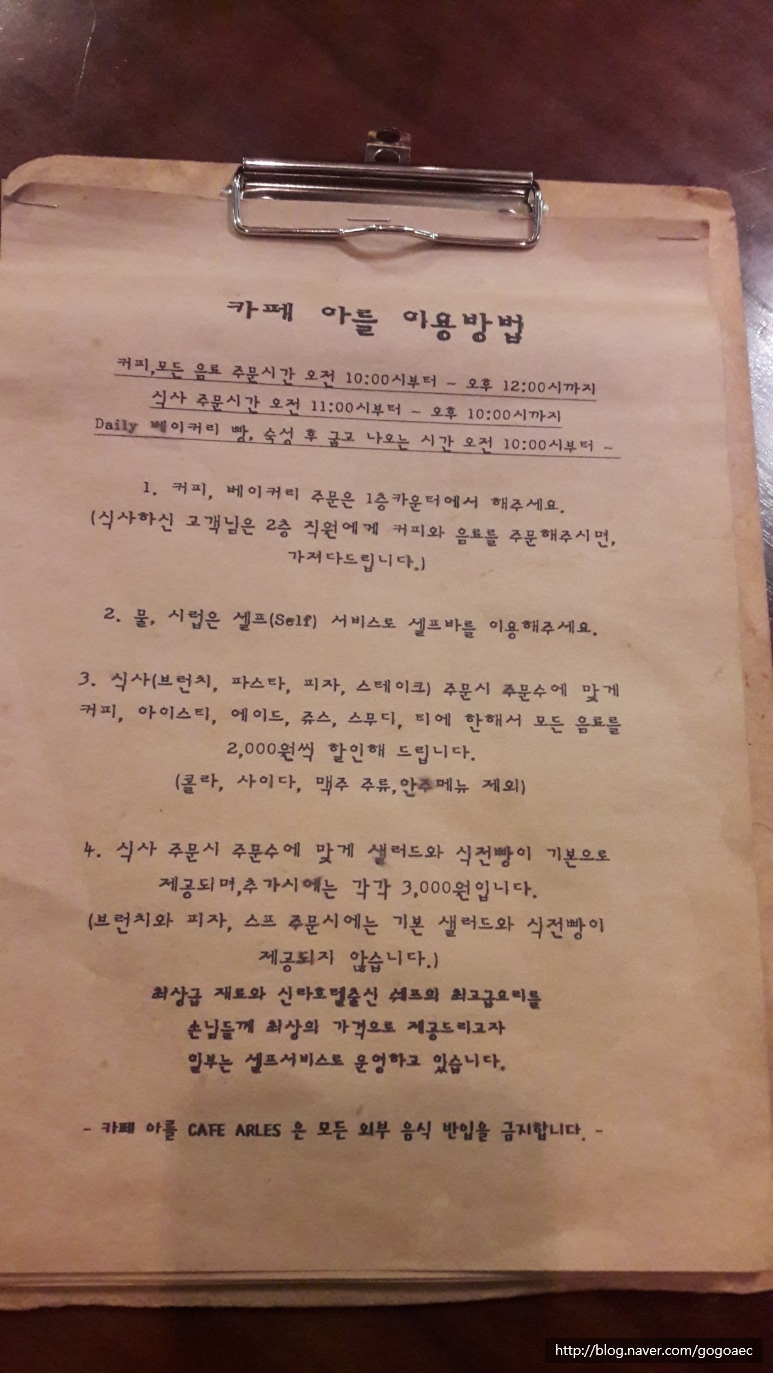 카페 아를 이용방법
커피,모든 음료 주문시간 오전 10:00시부터 ~ 오후 12:00시까지
식사 주문시간 오전 11:00시부터 ~ 오후 10:00시까지
Daily 베이커리 빵, 숙성 후 굽고 나오는 시간 오전 10:00시부터 ~
1. 커피, 베이커리 주문은 1층카운터에서 해주세요.
(식사하신 고객님은 2층 직원에게 커피와 음료를 주문해주시면,
가져다드립니다.)
2. 물, 시럽은 셀프(Self) 서비스로 셀프바를 이용해주세요.
3. 식사(브런치, 파스타, 피자, 스테이크) 주문시 주문수에 맞게
커피, 아이스티, 에이드, 쥬스, 스무디, 티에 한해서 모든 음료를
2,000원씩 할인해 드립니다.
(콜라, 사이다, 맥주 주류,안주메뉴 제외)
4. 식사 주문시 주문수에 맞게 샐러드와 식전빵이 기본으로
제공되며,추가시에는 각각 3,000원입니다.
(브런치와 피자, 스프 주문시에는 기본 샐러드와 식전빵이
제공되지 않습니다.)
최상급 재료와 신라호텔출신 쉐프의 최고급요리를
손님들께 최상의 가격으로 제공드리고자
일부는 셀프서비스로 운영하고 있습니다.
- 카페 아를 CAFE ARLES 은 모든 외부 음식 반입을 금지합니다. -
http://blog.naver.com/gogoaec